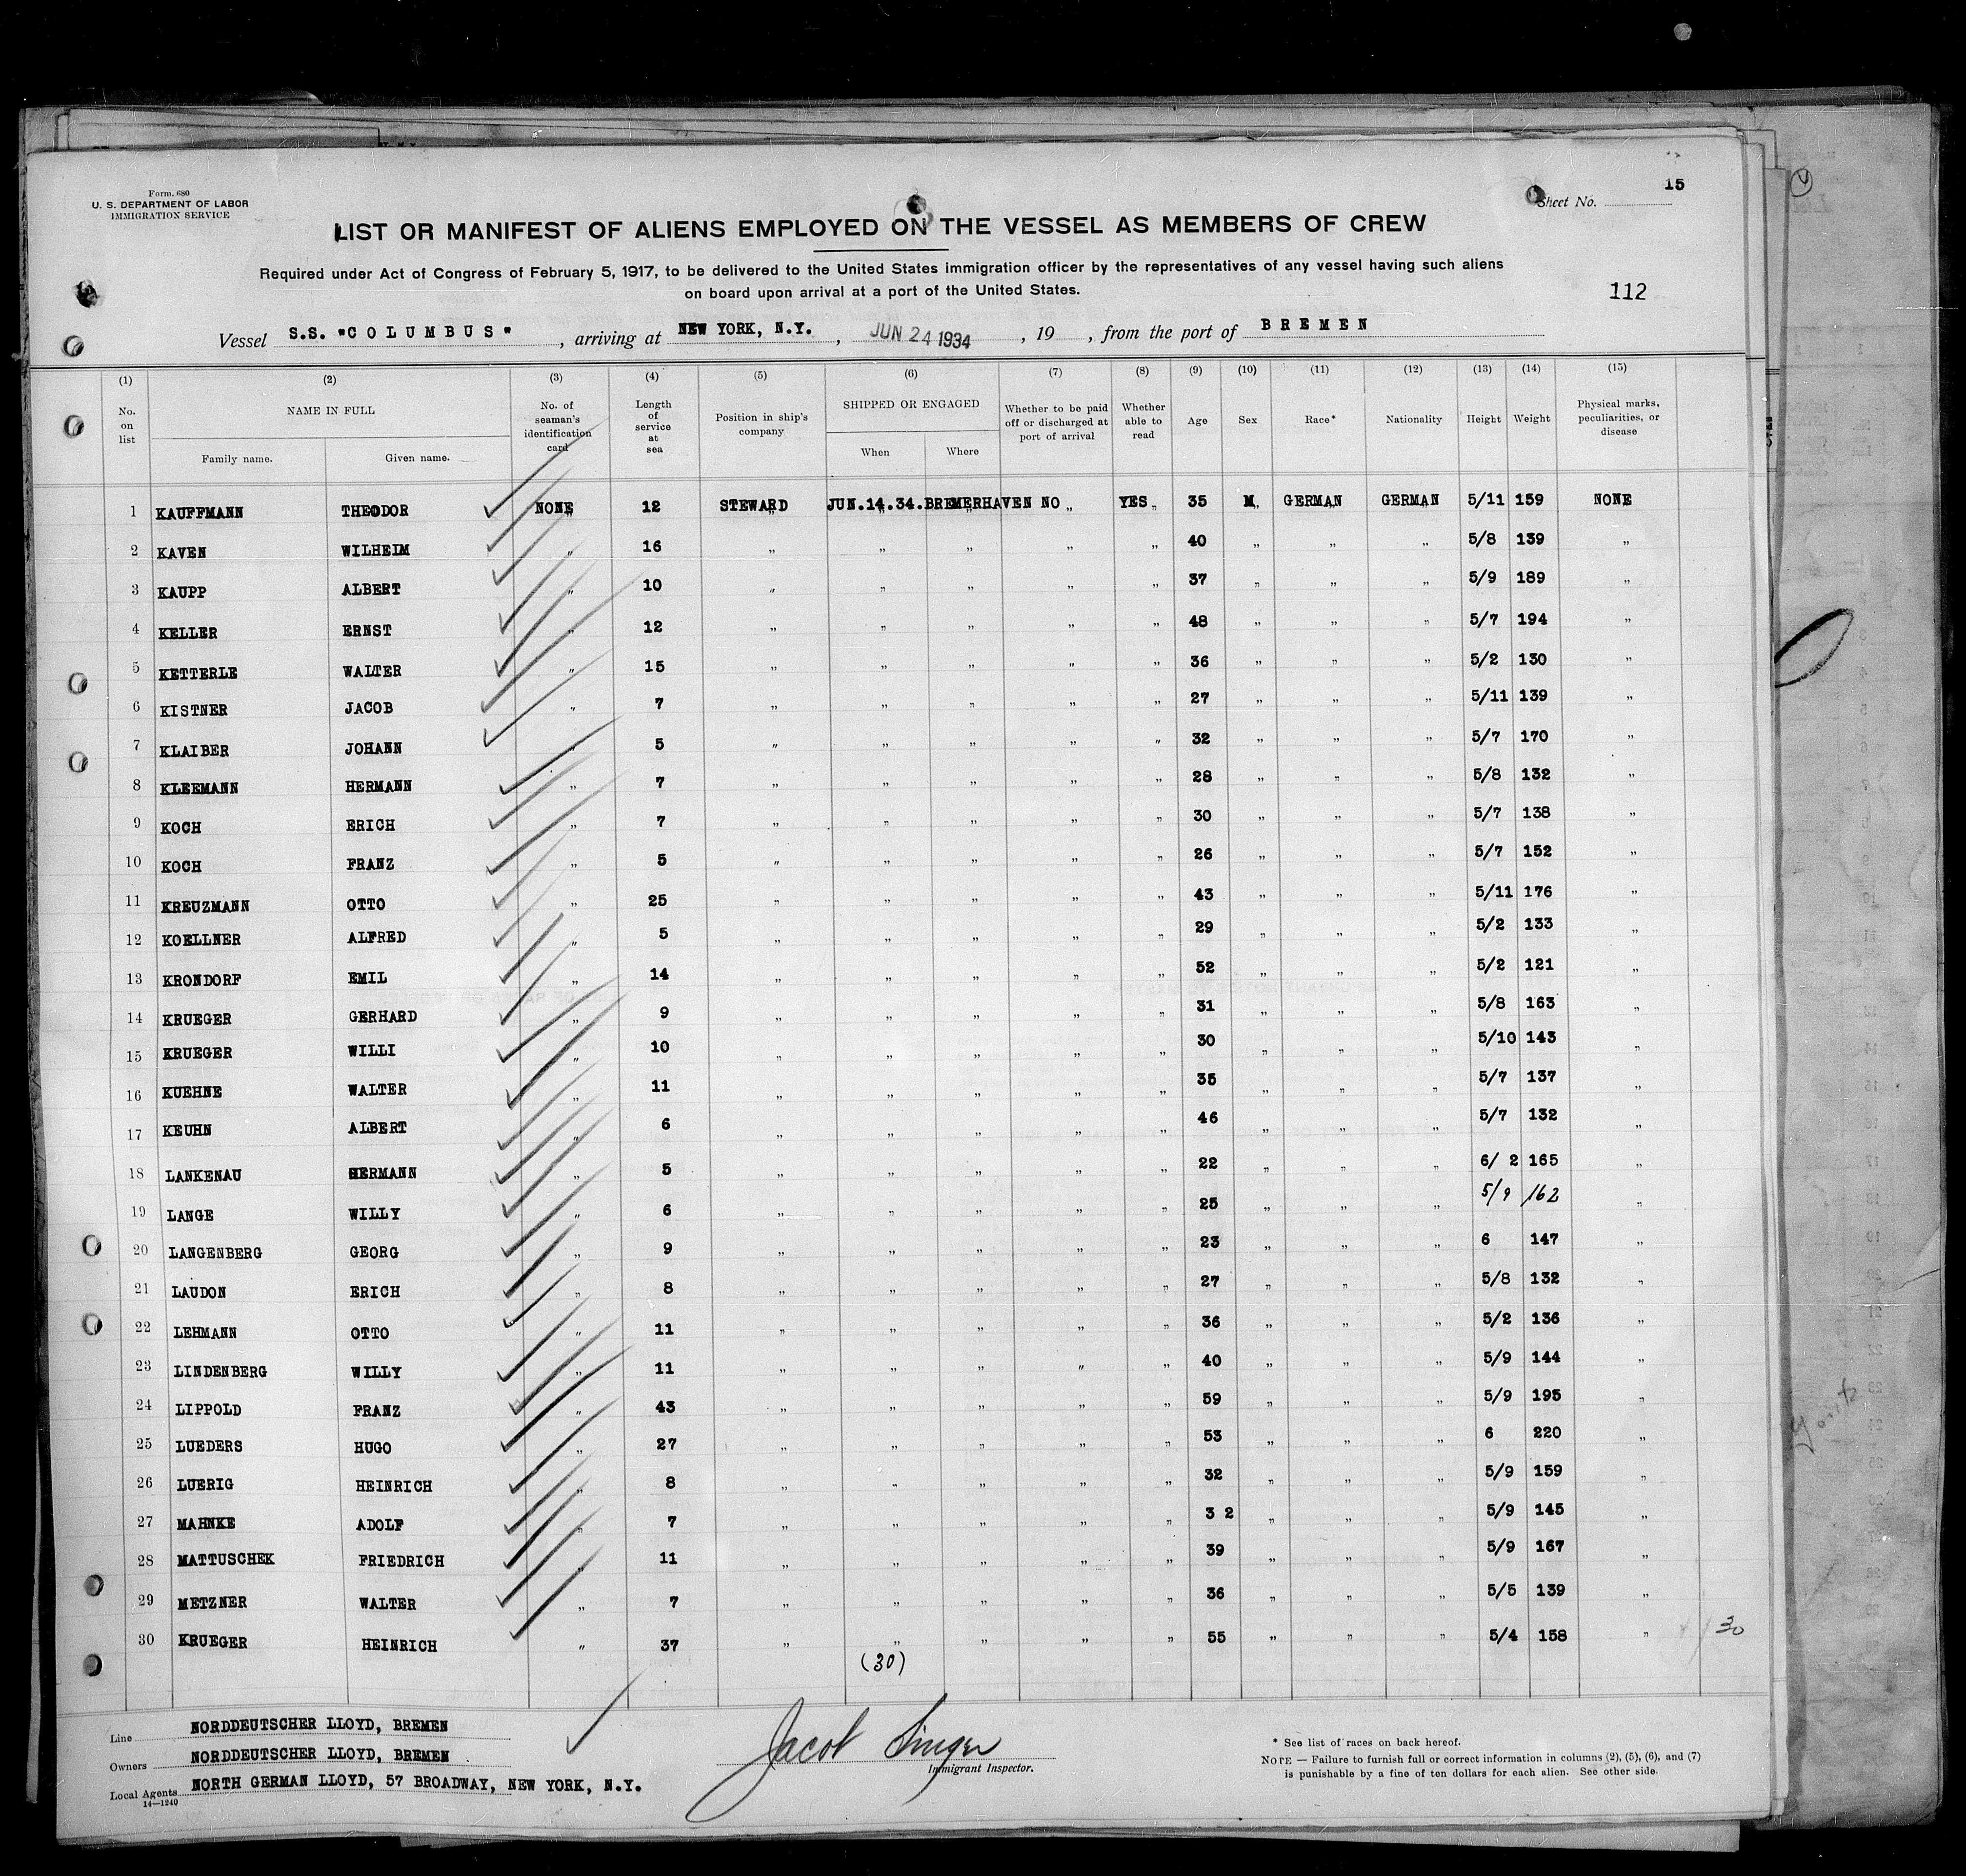 15
Form. 680
U. S. DEPARTMENT OF LABOR
IMMIGRATION SERVICE
Sheet No.
LIST OR MANIFEST OF ALIENS EMPLOYED ON THE VESSEL AS MEMBERS OF CREW
Required under Act of Congress of February 5, 1917, to be delivered to the United States immigration officer by the representatives of any vessel having such aliens
on board upon arrival at a port of the United States.
112
Vessel S.S. "COLUMBUS", arriving at NEW YORK, N.Y., JUN 24 1934, 19 , from the port of BREMEN
(1) (2) (3) (4) (5) (6) (7) (8) (9) (10) (11) (12) (13) (14) (15)
No. on list NAME IN FULL Family name. Given name. No. of seaman's identification card Length of service at sea Position in ship's company SHIPPED OR ENGAGED When Where Whether to be paid off or discharged at port of arrival Whether able to read Age Sex Race* Nationality Height Weight Physical marks, peculiarities, or disease
1 KAUFFMANN THEODOR NONE 12 STEWARD JUN.14.34.BREMERHAVEN NO YES 35 M GERMAN GERMAN 5/11 159 NONE
2 KAVEN WILHEIM " 16 " " " " " 40 " " " 5/8 139 "
3 KAUPP ALBERT " 10 " " " " " 37 " " " 5/9 189 "
4 KELLER ERNST " 12 " " " " " 48 " " " 5/7 194 "
5 KETTERLE WALTER " 15 " " " " " 36 " " " 5/2 130 "
6 KISTNER JACOB " 7 " " " " " 27 " " " 5/11 139 "
7 KLAIBER JOHANN " 5 " " " " " 32 " " " 5/7 170 "
8 KLEEMANN HERMANN " 7 " " " " " 28 " " " 5/8 132 "
9 KOCH ERICH " 7 " " " " " 30 " " " 5/7 138 "
10 KOCH FRANZ " 5 " " " " " 26 " " " 5/7 152 "
11 KREUZMANN OTTO " 25 " " " " " 43 " " " 5/11 176 "
12 KOELLNER ALFRED " 5 " " " " " 29 " " " 5/2 133 "
13 KRONDORF EMIL " 14 " " " " " 52 " " " 5/2 121 "
14 KRUEGER GERHARD " 9 " " " " " 31 " " " 5/8 163 "
15 KRUEGER WILLI " 10 " " " " " 30 " " " 5/10 143 "
16 KUEHNE WALTER " 11 " " " " " 35 " " " 5/7 137 "
17 KEUHN ALBERT " 6 " " " " " 46 " " " 5/7 132 "
18 LANKENAU HERMANN " 5 " " " " " 22 " " " 6/ 2 165 "
19 LANGE WILLY " 6 " " " " " 25 " " " 5/9 162 "
20 LANGENBERG GEORG " 9 " " " " " 23 " " " 6 147 "
21 LAUDON ERICH " 8 " " " " " 27 " " " 5/8 132 "
22 LEHMANN OTTO " 11 " " " " " 36 " " " 5/2 136 "
23 LINDENBERG WILLY " 11 " " " " " 40 " " " 5/9 144 "
24 LIPPOLD FRANZ " 43 " " " " " 59 " " " 5/9 195 "
25 LUEDERS HUGO " 27 " " " " " 53 " " " 6 220 "
26 LUERIG HEINRICH " 8 " " " " " 32 " " " 5/9 159 "
27 MAHNKE ADOLF " 7 " " " " " 3 2 " " " 5/9 145 "
28 MATTUSCHEK FRIEDRICH " 11 " " " " " 39 " " " 5/9 167 "
29 METZNER WALTER " 7 " " " " " 36 " " " 5/5 139 "
30 KRUEGER HEINRICH " 37 " " " " " 55 " " " 5/4 158 " 30
(30)
Line NORDDEUTSCHER LLOYD, BREMEN
Owners NORDDEUTSCHER LLOYD, BREMEN
Local Agents NORTH GERMAN LLOYD, 57 BROADWAY, NEW YORK, N.Y.
14—1240
Jacob Singer
Immigrant Inspector.
* See list of races on back hereof.
NOTE — Failure to furnish full or correct information in columns (2), (5), (6), and (7)
is punishable by a fine of ten dollars for each alien. See other side.